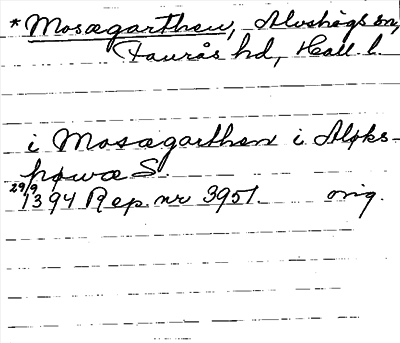 *Mosægarthen, Alvshögs sn,
Faurås hd, Hall. l.
i Mosægarthen i Aløks-
høwæ S.
29/9 1394 Rep. nr 3951. orig.